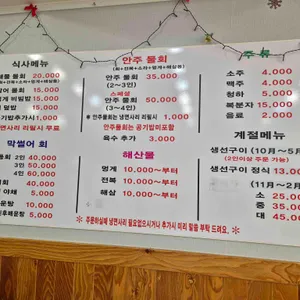 식사메뉴
20,000
15,000
비빔밥 15,000
덮밥 15,000
공기밥추가시 1,000
사리 리필시 무료
막썰어 회
2인 40,000
3인 50,000
4인 60,000
40,000
야채 5,000
10,000
5,000
안주 물회
(회+전복+소라+멍게+해삼등)
안주 물회 35,000
(2~3인)
스페셜
안주 물회 50,000
(3~4인)
※ 안주물회는 냉면사리 리필시 1,000
안주물회는 공기밥미포함
육수 추가 3,000
해산물
멍게 10,000~부터
전복 10,000~부터
해삼 10,000~부터
주류
소주 4,000
맥주 4,000
청하 5,000
복분자 15,000
음료 2,000
계절메뉴
생선구이 (10月~5月
(2인이상 주문 가능)
생선구이 정식 13,00
(11月~2月
소 25,00
중 35,00
대 45,00
※주문하실때 냉면사리 필요없으시거나 추가시 미리 말씀 부탁 드려요.※